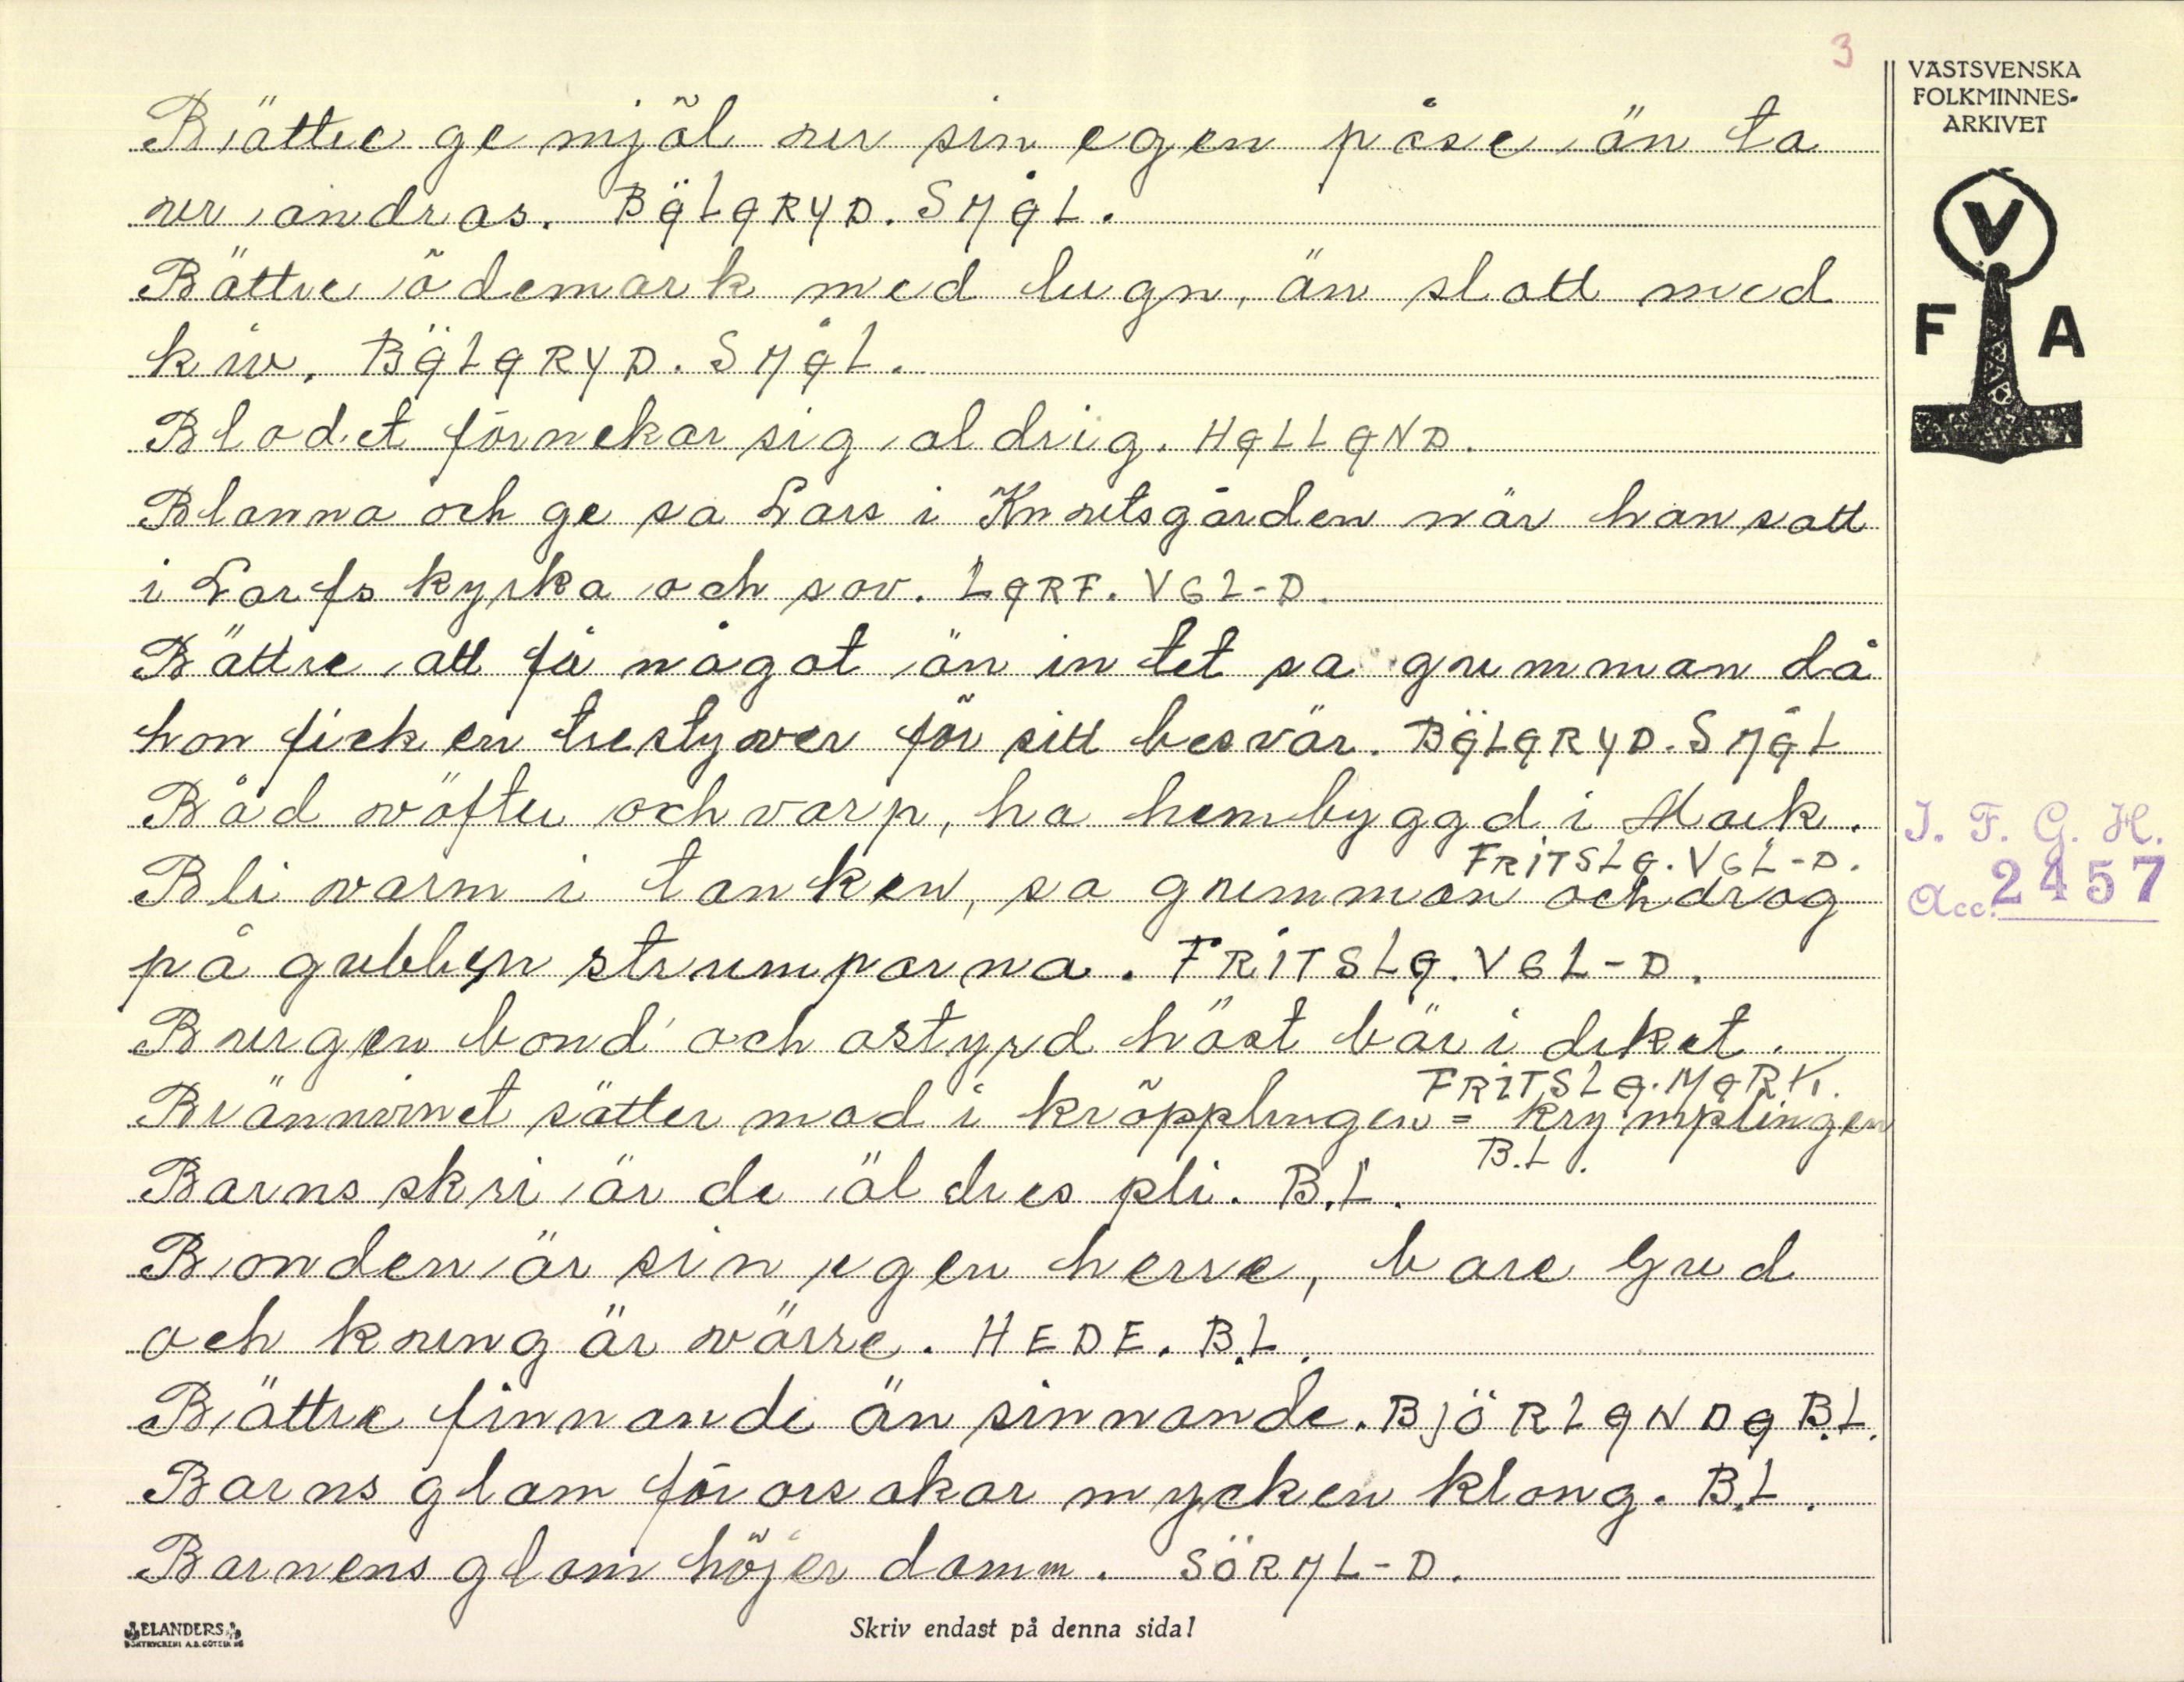 3
VÄSTSVENSKA
FOLKMINNES-
ARKIVET
V
F A
Bättre ge mjöl ur sin egen påse än ta
ur andras. BÄLARYD. SMÅL.
Bättre ödemark med lugn, än slott med
kiv. BÄLARYD. SMÅL.
Blodet förnekar sig aldrig. HALLAND.
Blanna och ge sa Lars i Knutsgården när han satt
i Larfs kyrka och sov. LARF. VGL-D.
Bättre att få något än intet sa gumman då
hon fick en trestyver för sitt besvär. BÄLARYD. SMÅL
Båd väfter och varp, ha hembyggd i Mark.
FRITSLA. VGL-D.
Bli varm i tanken, sa gumman och drog
på gubben strumporna. FRITSLA. VGL-D.
Burgen bond' och ostyrd häst bär i diket.
FRITSLA. MARK.
Brännvinet sätter mod i kröpplingen = krymplingen
B.L.
Barns skri är de äldres pli. B.L.
Bonden är sin egen herre, bare Gud
och kung är värre. HEDE. B.L.
Bättre finnande än sinnande. BJÖRLANDA B.L.
Barns glam förorsakar mycken klang. B.L.
Barnens glam höjer damm. SÖRML-D.
I. F. G. H.
Acc. 2457
ELANDERS
BOKTRYCKERI A.B. GÖTEBORG
Skriv endast på denna sida!